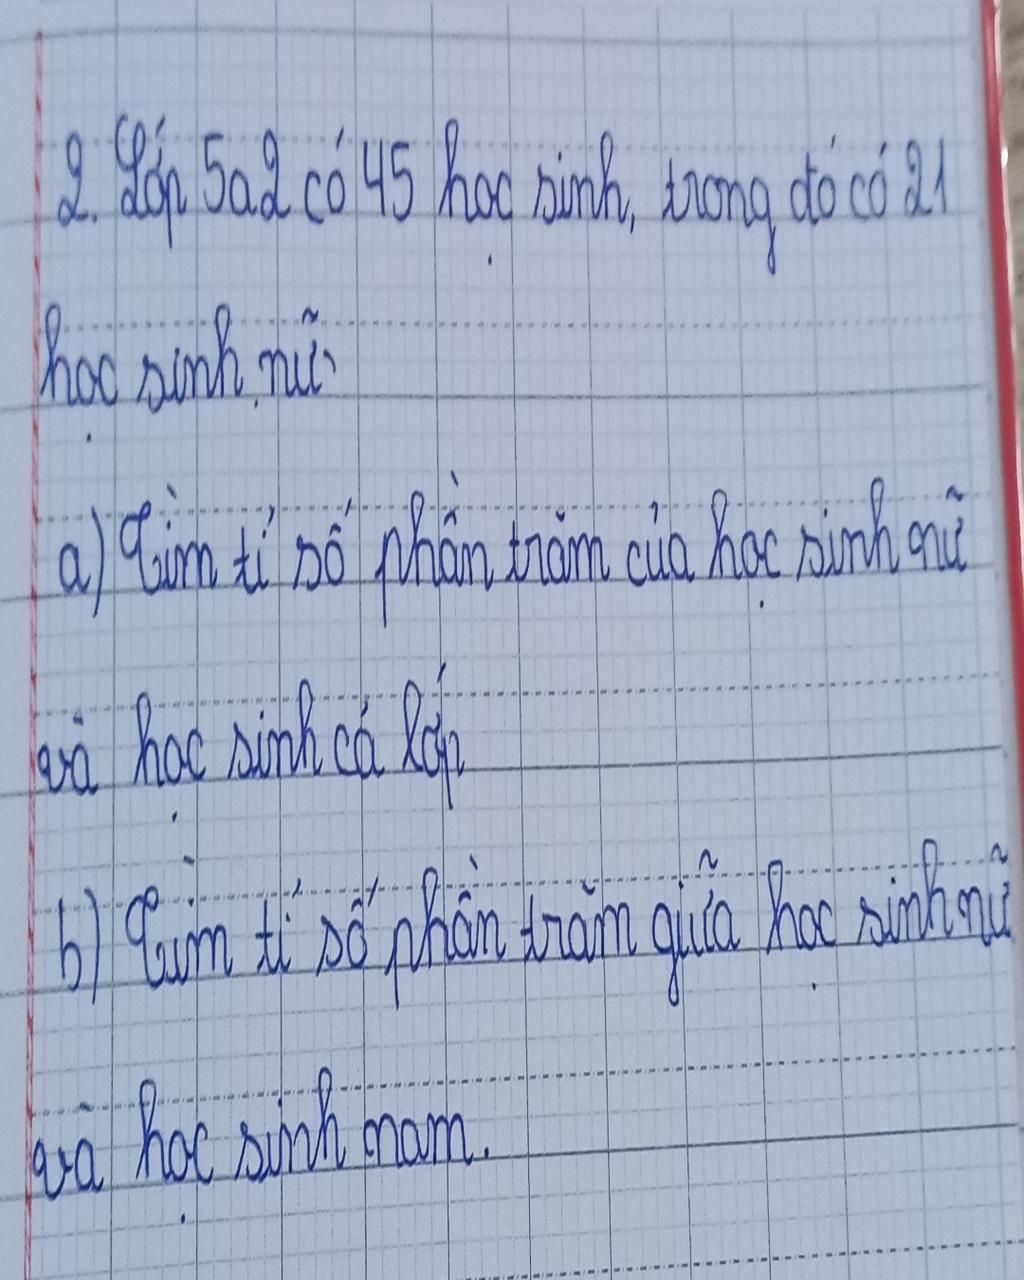 2. Lớp 5a2 có 45 học sinh, trong đó có 21
học sinh nữ.
a) Tìm tỉ số phần trăm của học sinh nữ
và học sinh cả lớp
b) Tìm tỉ số phần trăm giữa học sinh nữ
và học sinh nam.